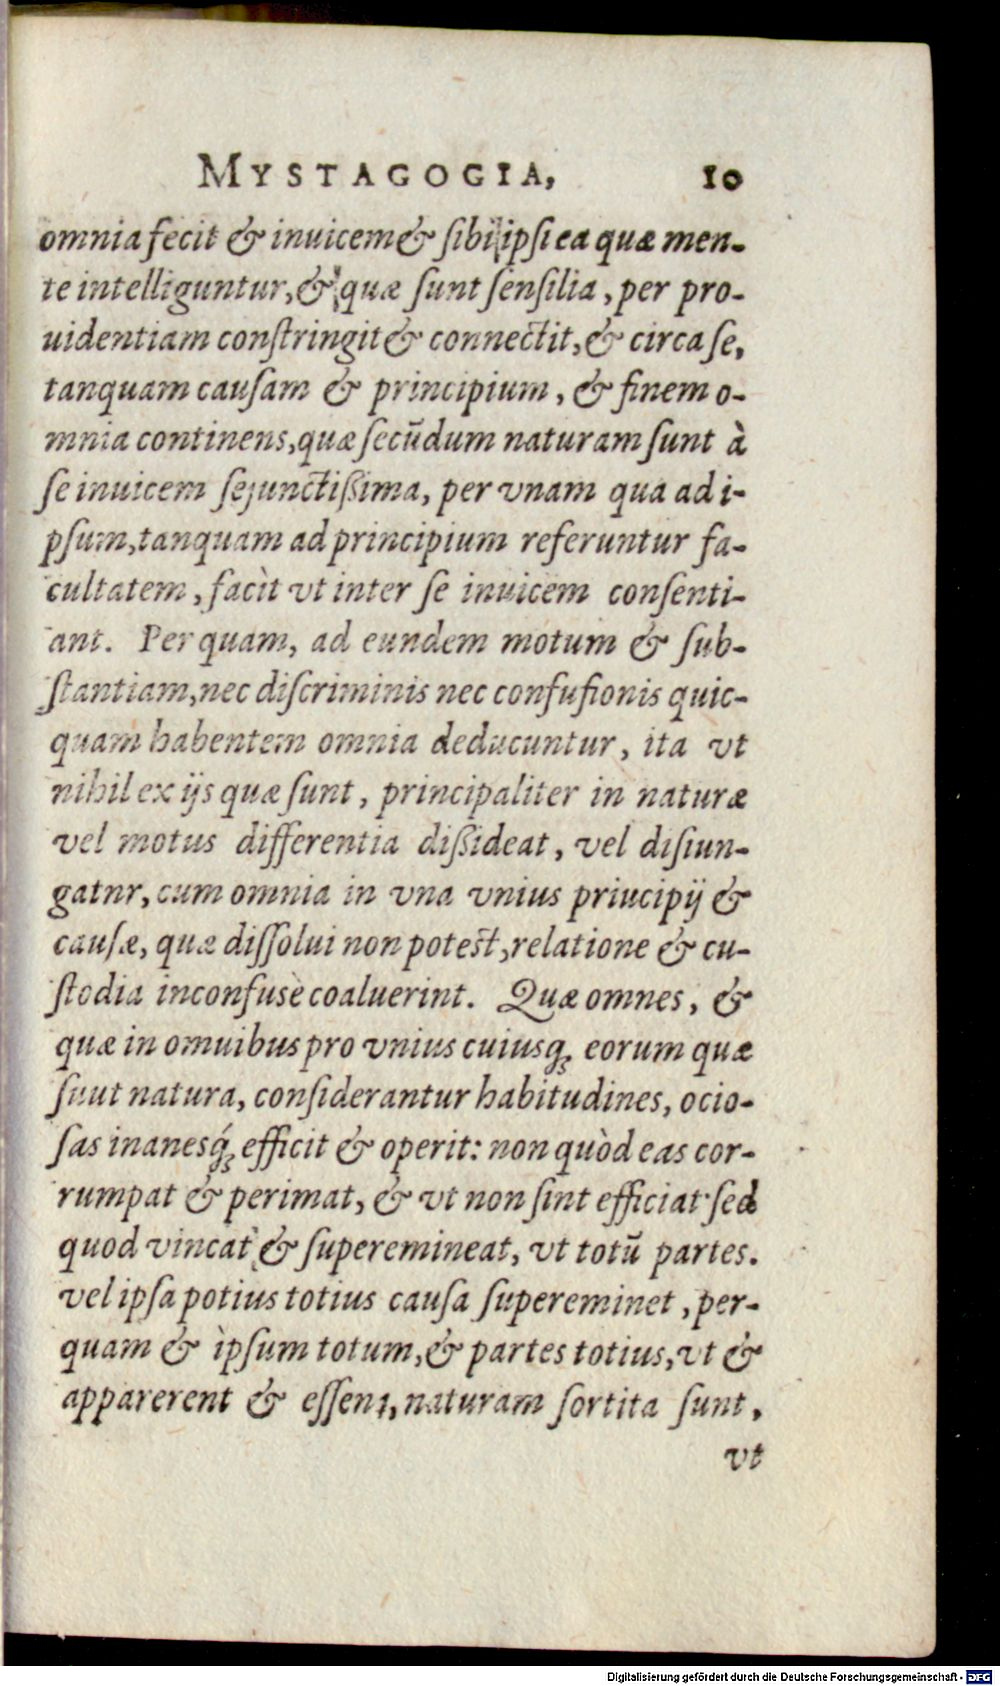 MYSTAGOGIA, 10
omnia fecit & inuicem & sibi ipsi ea quæ men-
te intelliguntur, & quæ sunt sensilia, per pro-
uidentiam constringit & connectit, & circa se,
tanquam causam & principium, & finem o-
mnia continens, quæ secūdum naturam sunt à
se inuicem sejunctissima, per vnam qua ad i-
psum, tanquam ad principium referuntur fa-
cultatem, facìt vt inter se inuicem consenti-
ant. Per quam, ad eundem motum & sub-
stantiam, nec discriminis nec confusionis quic-
quam habentem omnia deducuntur, ita vt
nihil ex ijs quæ sunt, principaliter in naturæ
vel motus differentia dissideat, vel disiun-
gatnr, cum omnia in vna vnius priucipij &
causæ, quæ dissolui non potest, relatione & cu-
stodia inconfusè coaluerint. Quæ omnes, &
quæ in omuibus pro vnius cuiusq; eorum quæ
suut natura, considerantur habitudines, ocio-
sas inanesq́; efficit & operit: non quòd eas cor-
rumpat & perimat, & vt non sint efficiat· sed
quod vincat & superemineat, vt totū partes.
vel ipsa potius totius causa supereminet, per-
quam & ìpsum totum, & partes totius, vt &
apparerent & essent, naturam sortita sunt,
vt
Digitalisierung gefördert durch die Deutsche Forschungsgemeinschaft - DFG